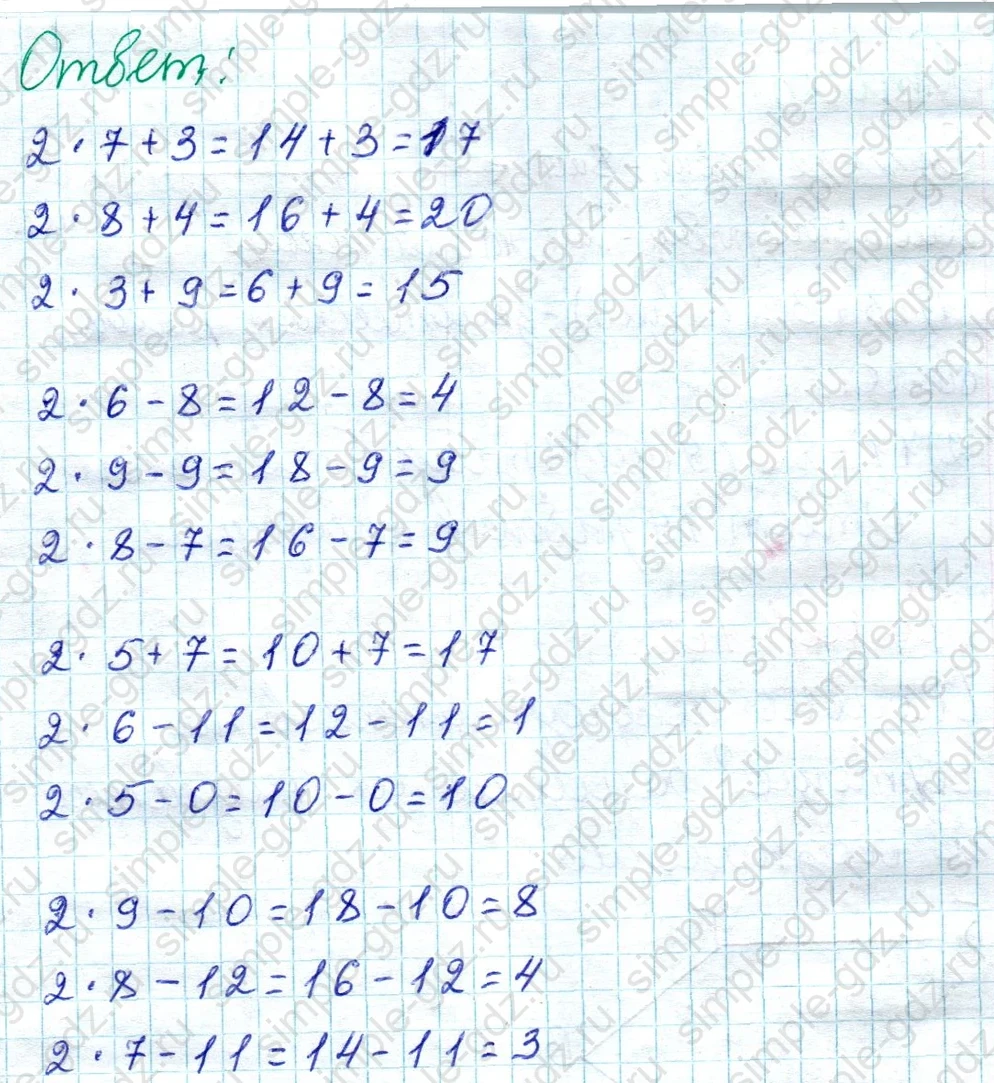 Ответ:
2 · 7 + 3 = 14 + 3 = 17
2 · 8 + 4 = 16 + 4 = 20
2 · 3 + 9 = 6 + 9 = 15
2 · 6 - 8 = 12 - 8 = 4
2 · 9 - 9 = 18 - 9 = 9
2 · 8 - 7 = 16 - 7 = 9
2 · 5 + 7 = 10 + 7 = 17
2 · 6 - 11 = 12 - 11 = 1
2 · 5 - 0 = 10 - 0 = 10
2 · 9 - 10 = 18 - 10 = 8
2 · 8 - 12 = 16 - 12 = 4
2 · 7 - 11 = 14 - 11 = 3
simple-gdz.ru